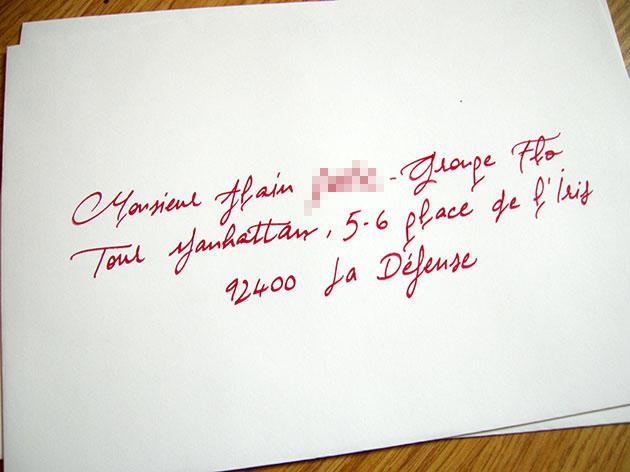 Monsieur Alain - Groupe Flo
Tour Manhattan, 5-6 place de l'Iris
92400 La Défense